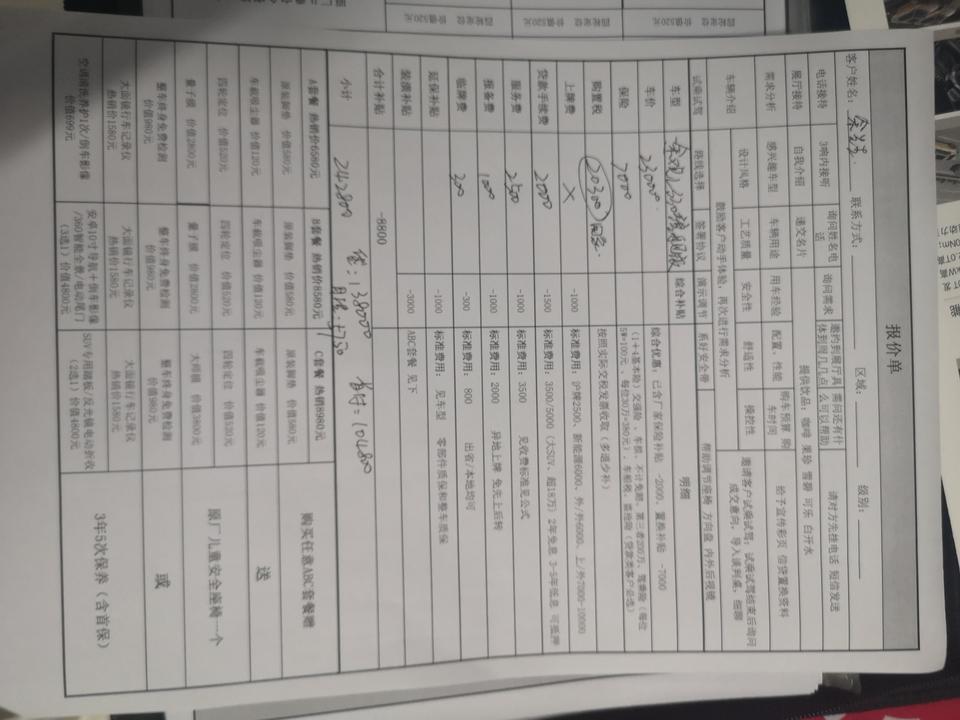 报价单
客户姓名： 联系方式： 区域： 级别：
电话接待 3响内接听 询问姓名电话 询问需求 邀约到展厅具体到周几几点 需问还有什么可以帮助 请对方先挂电话 短信发送
展厅接待 自我介绍 递交名片 提供饮品：咖啡 果珍 雪碧 可乐 白开水
需求分析 感兴趣车型 车辆用途 用车经验 配置、性能 购车预算 购车时间 给予宣传彩页 信贷置换资料
车辆介绍 设计风格 工艺质量 安全性 舒适性 操控性 邀请客户试乘试驾；试乘试驾结束后询问成交意向，导入谈判桌，细聊
鼓励客户动手体验，再次进行需求分析
试乘试驾 路线选择 签署协议 演示调节 系好安全带 帮助调节座椅 方向盘 内外后视镜
车型 综合补贴 明细
车价 230000 综合优惠：已含厂家保险补贴 -2000、置换补贴 -7000
保险 7000
购置税 20300 按照实际交税发票收取（多退少补）
上牌费 X -1000 标准费用：沪牌2500、新能源6000、外/外6000、上/外7000-10000
贷款手续费 2000 -1500 标准费用：3500/5000（大SUV、超18万）2年免息 3-5年低息 可抵押
服务费 2500 -1000 标准费用：3500 见收费标准见公式
报备费 100 -1000 标准费用：2000 异地上牌 免先上后转
临牌费 300 -300 标准费用：800 出省/本地均可
延保补贴 -1000 标准费用：见车型 零部件质保和整车质保
装潢补贴 -3000 ABC套餐 见下
合计补贴 -8800
小计 242800 贷：138000 首付：104800
月供：3730
A套餐 热销价6580元 B套餐 热销价8580元 C套餐 热销价8980元 购买任意ABC套餐赠
原装脚垫 价值580元 原装脚垫 价值580元 原装脚垫 价值580元
车载吸尘器 价值120元 车载吸尘器 价值120元 车载吸尘器 价值120元 送
四轮定位 价值520元 四轮定位 价值520元 四轮定位 价值520元 原厂儿童安全座椅一个
量子膜 价值2800元 量子膜 价值2800元 大师膜 价值3800元
整车终身免费检测 价值980元 整车终身免费检测 价值980元 整车终身免费检测 价值980元 或
大面镜行车记录仪 热销价1580元 大面镜行车记录仪 热销价1580元 大面镜行车记录仪 热销价1580元 3年5次保养（含首保）
空调清洗养护1次/倒车影像 价值699元 安卓10寸导航＋倒车影像/360智能全景/电动尾门（3选1）价值4800元 SUV专用踏板/反光镜电动折收（2选1）价值4800元